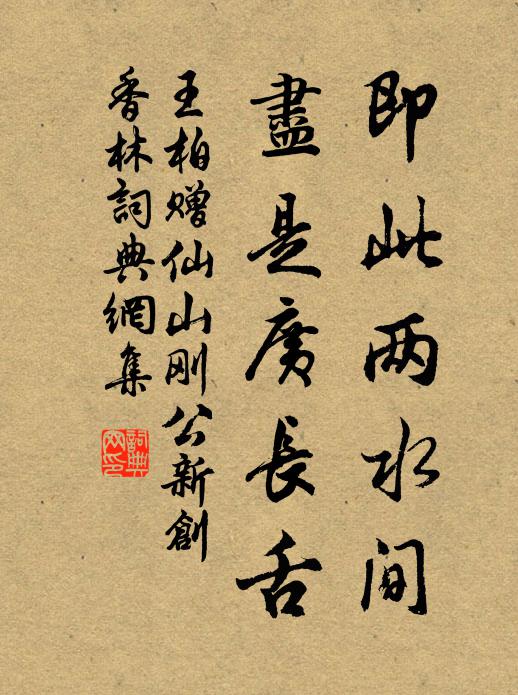 即此两水间
盡是廣長舌
王柏赠仙山刚公新創
香林詞典網集
詞典網印